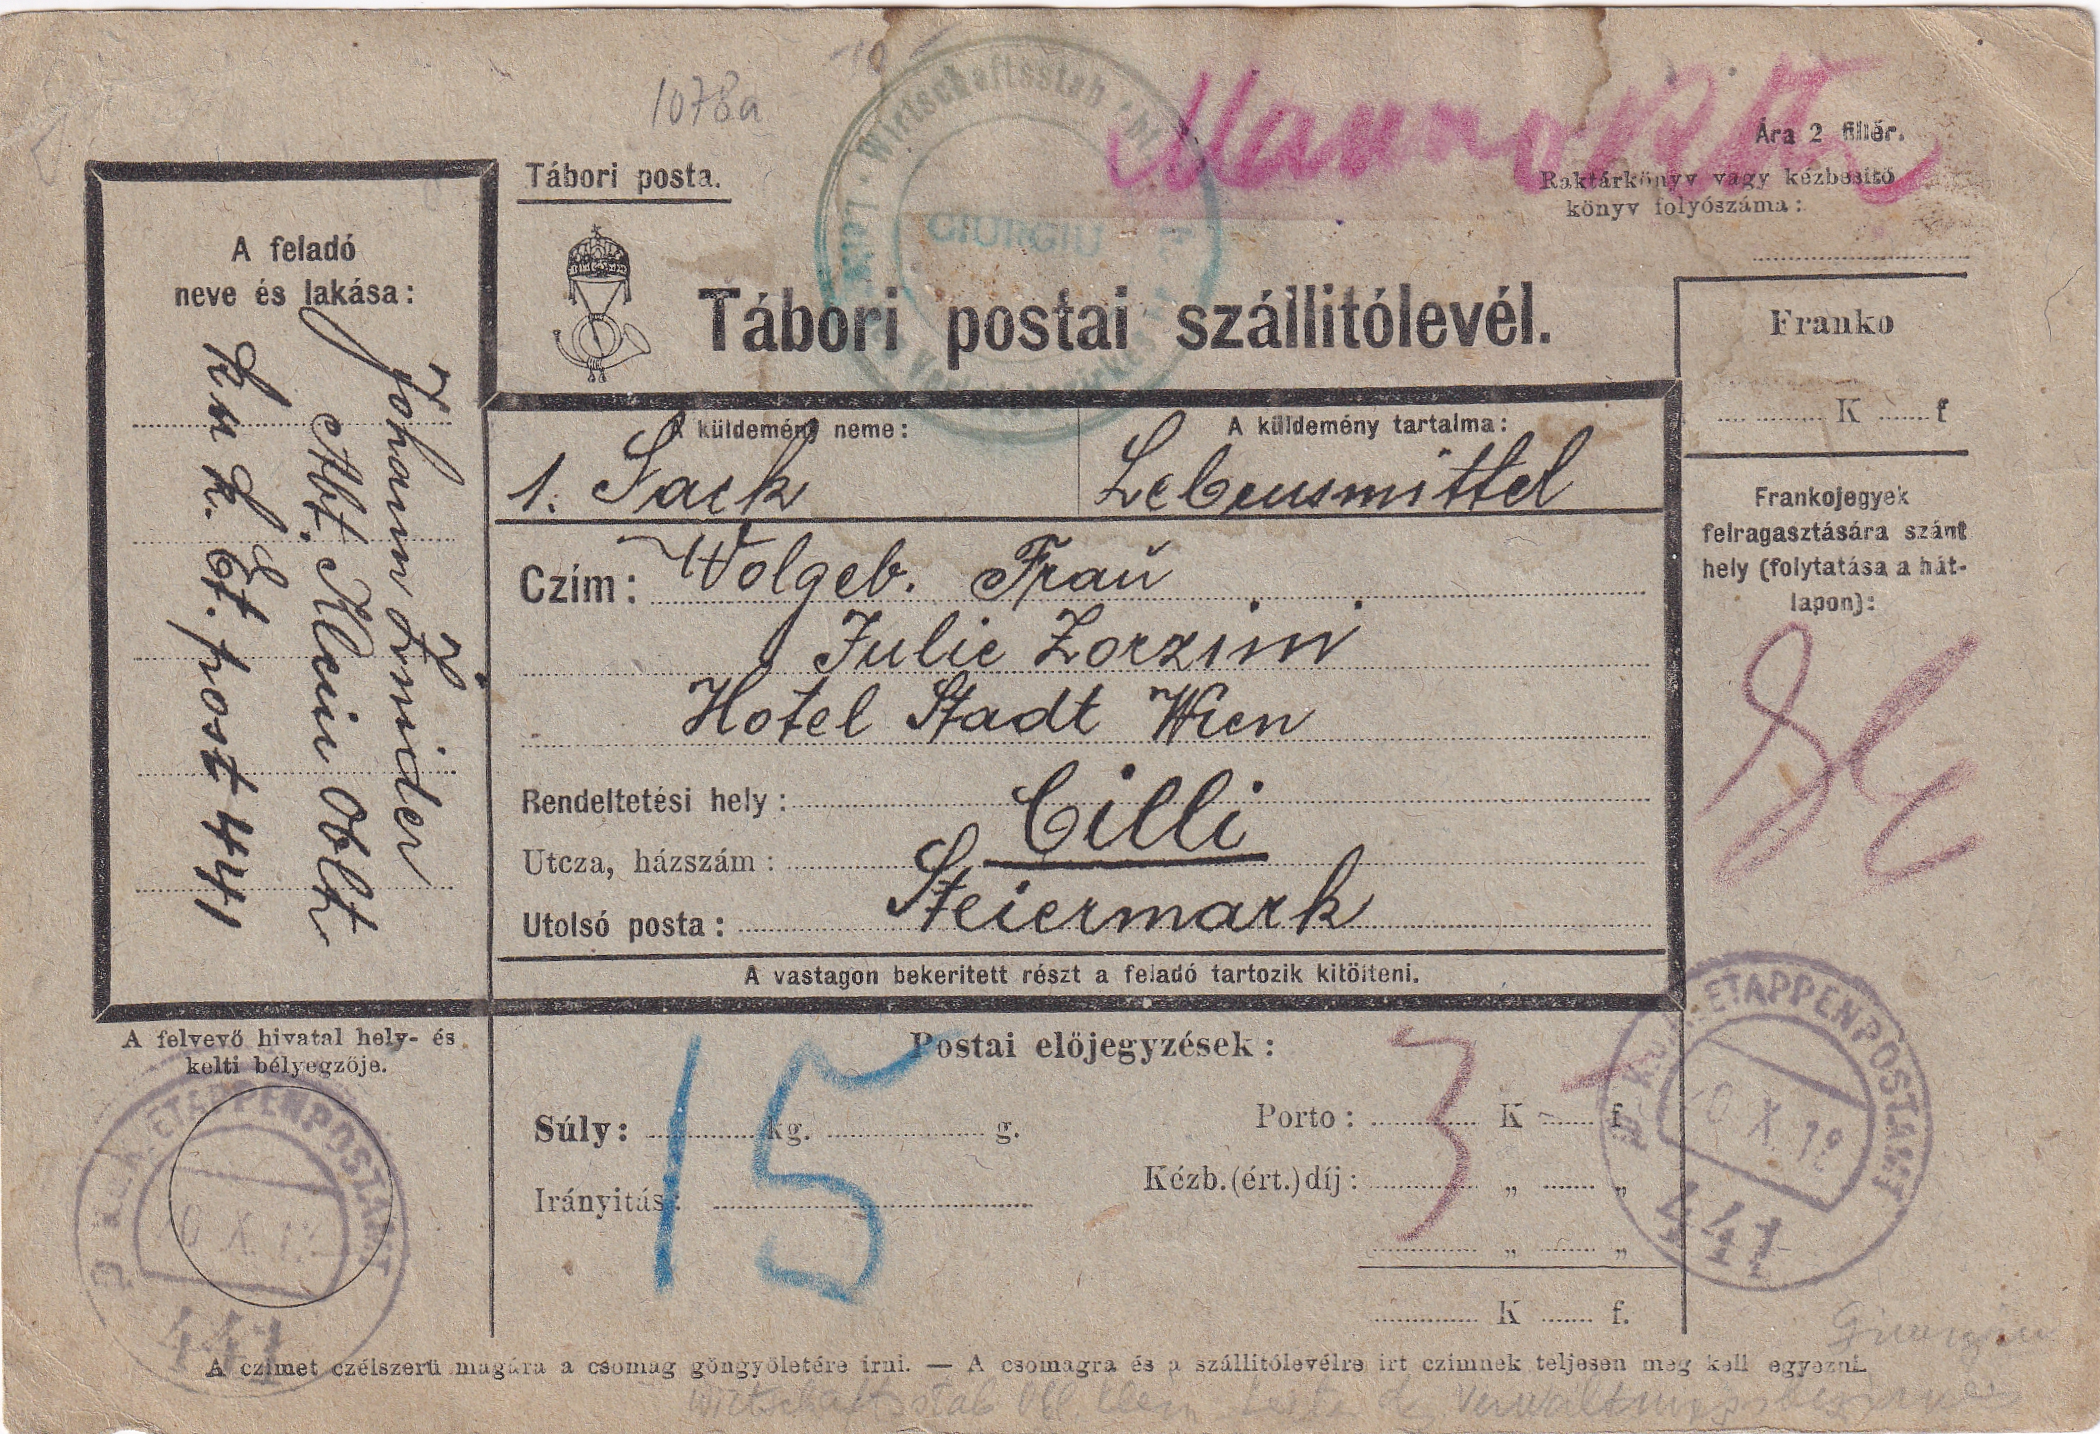 1078a
Wirtschaftsstab
GIURGIU
Ára 2 fillér.
Tábori posta.
Raktárkönyv vagy kézbesitő
könyv folyószáma:
Tábori postai szállitólevél.
A feladó
neve és lakása:
Johann
Abt. Klein Oblt
K u k. Et. post 441
Franko
K f
A küldemény neme:
1. Sack
A küldemény tartalma:
Lebensmittel
Frankojegyek
felragasztására szánt
hely (folytatása a hát-
lapon):
Czím: Wolgeb. Frau
Julie Zorzini
Hotel Stadt Wien
Rendeltetési hely: Cilli
Utcza, házszám:
Utolsó posta: Steiermark
A vastagon bekeritett részt a feladó tartozik kitölteni.
A felvevő hivatal hely- és
kelti bélyegzője.
ETAPPENPOSTAMT
X.
441
Postai előjegyzések:
15
Súly: kg. g.
Irányitás:
3
Porto: K f
Kézb.(ért.)díj: " "
" "
K f.
K.u.K. ETAPPENPOSTAMT
X. 18
441
A czimet czélszerü magára a csomag göngyöletére irni. — A csomagra és a szállitólevélre irt czimnek teljesen meg kell egyezni.
Wirtschaftsstab